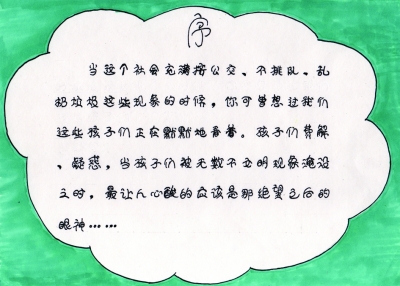 序
当这个社会充满挤公交、不排队、乱
扔垃圾这些现象的时候，你可曾想过我们
这些孩子们正在默默地看着。孩子们费解
、疑惑，当孩子们被无数不文明现象淹没
之时，最让人心酸的应该是那绝望之后的
眼神……